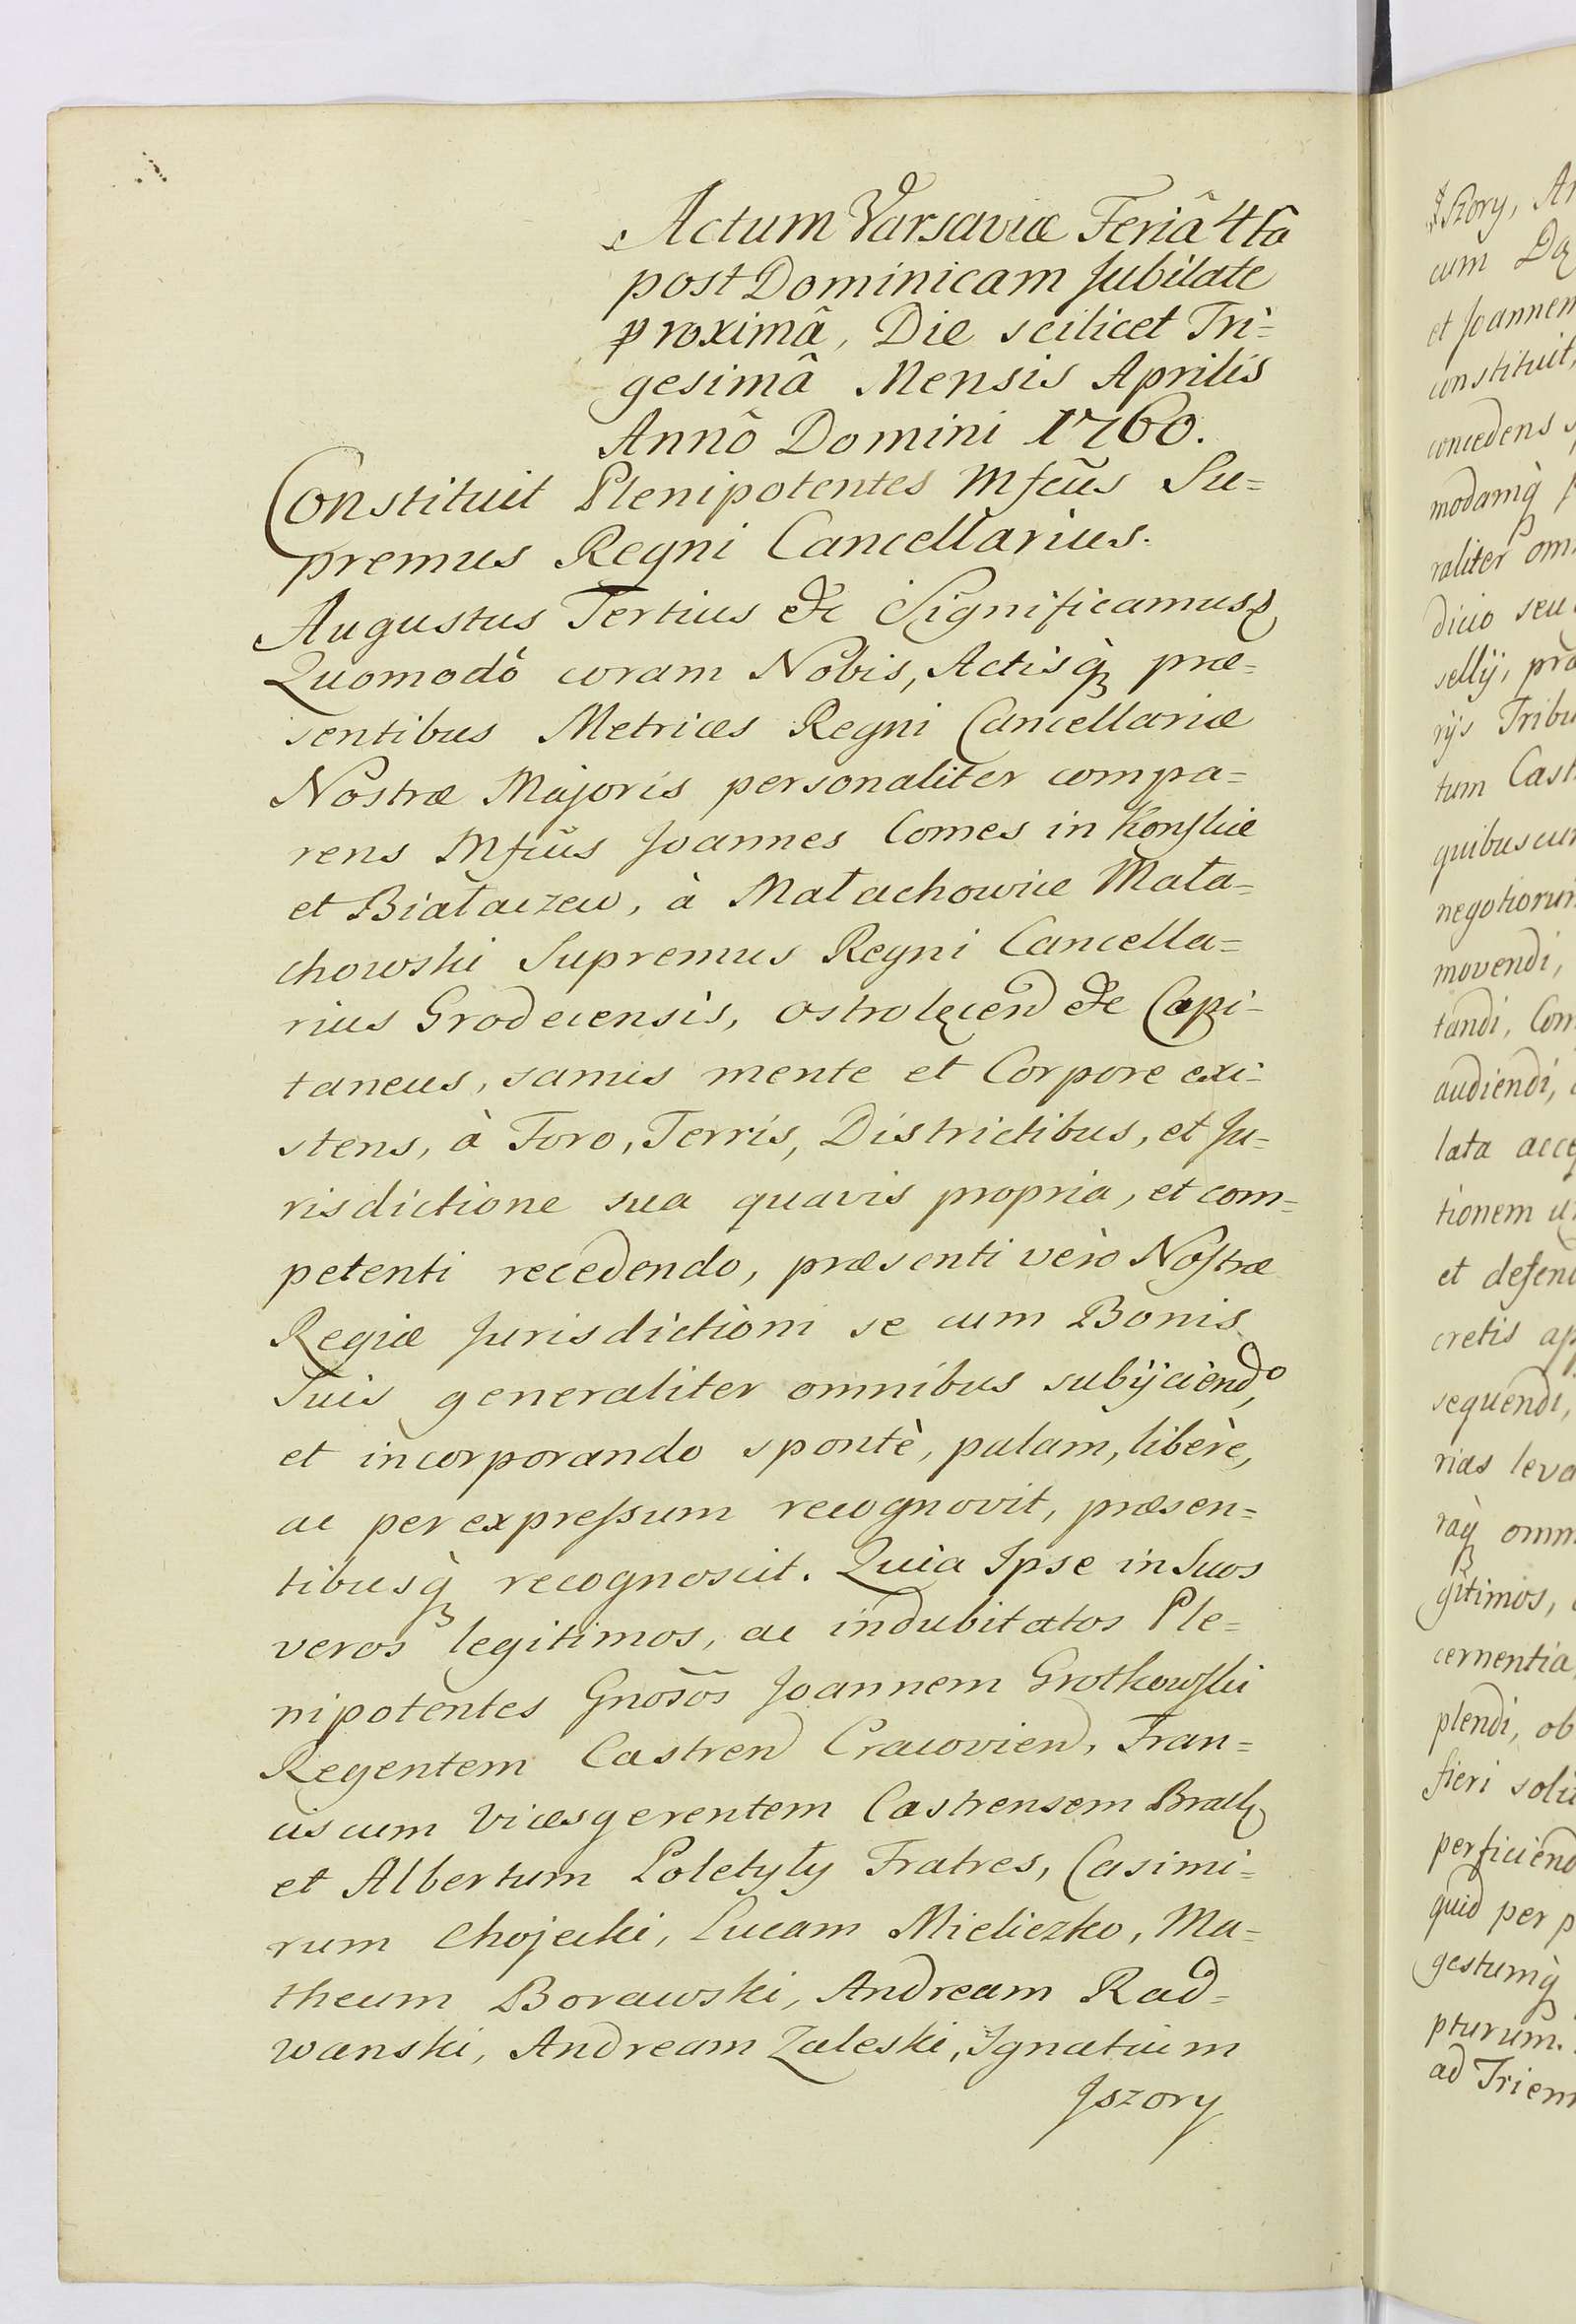 Actum Varsaviæ Feriâ 4tâ
post Dominicam Jubilate
proximâ, Die scilicet Tri=
gesimâ Mensis Aprilis
Annô Domini 1760.
Constituit Plenipotentes Mfcũs Su=
premus Regni Cancellarius.
Augustus Tertius &c Significamus &
Quomodò coram Nobis, Actisq̀ præ=
sentibus Metrices Regni Cancellariæ
Nostræ Majoris personaliter compa=
rens Mfcũs Joannes Comes in Konskie
et Białaczew, à Małachowice Mała=
chowski Supremus Regni Cancella=
rius Grodecensis, Ostrolęcen &c Capi=
taneus, sanus mente et Corpore exi=
stens, à Foro, Terris, Districtibus, et Ju=
risdictione sua quavis propria, et com=
petenti recedendo, præsenti verò Nostræ
Regiæ Jurisdictioni se cum Bonis
Suis generaliter omnibus subijciendo,
et incorporando spontè, palam, liberè,
ac per expressum recognovit, præsen=
tibusq̀ recognoscit. Quia Ipse in Suos
veros legitimos, ac indubitatos Ple=
nipotentes Gnosõs Joannem Grotkowski
Regentem Castren Cracovien, Fran=
ciscum Vicesgerentem Castrensem
et Albertum Poletyły Fratres, Casimi=
rum Chojecki, Lucam Mieliczko, Ma=
theum Borawski, Andream Rad=
wanski, Andream Zaleski, Ignatium
Jszory
cum
et Joannem
constituit,
concedens
modamq̀
raliter
dicio seu
sellij,
rijs
tum
quibuscun
negotiorum
movendi,
tandi,
audiendi,
lata
tionem
et
cretis
sequendi,
rias
raq̀
gitimos,
cernentia
plendi, ob
fieri
perficiend
quid per
gestumq̀
pturum.
ad